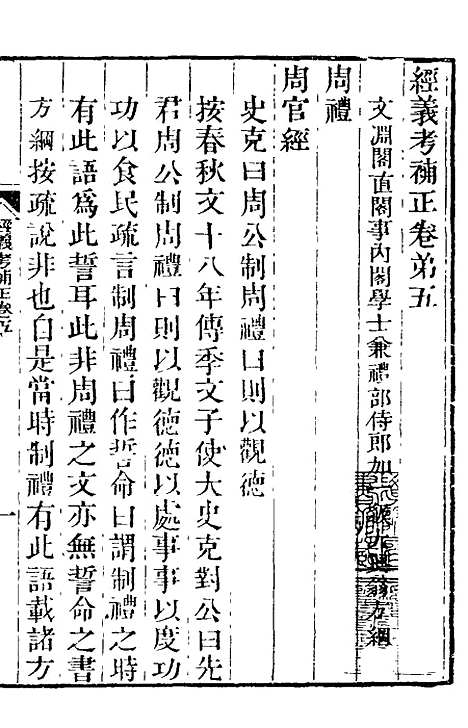 經義考補正卷弟五
文淵閣直閣事內閣學士兼禮部侍郎加 方綱
周禮
周官經
史克曰周公制周禮曰則以觀德
按春秋文十八年傳季文子使大史克對公曰先
君周公制周禮曰則以觀德德以處事事以度功
功以食民疏言制周禮曰作誓命曰謂制禮之時
有此語爲此誓耳此非周禮之文亦無誓命之書
方綱按疏說非也自是當時制禮有此語載諸方
經義考補正卷五
一